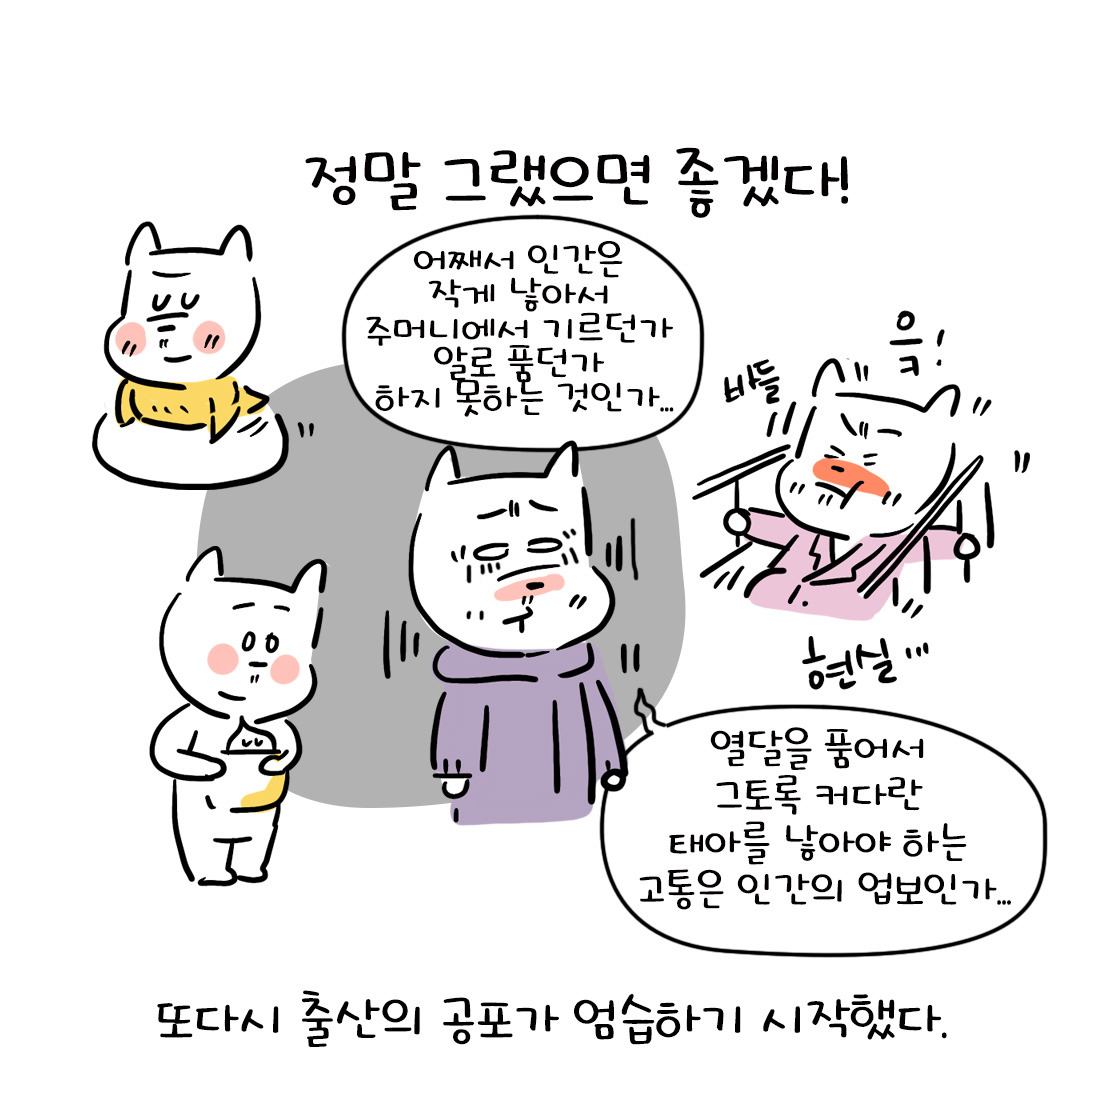 정말 그랬으면 좋겠다!
어째서 인간은
작게 낳아서
주머니에서 기르던가
알로 품던가
하지 못하는 것인가...
윽!
바들
현실...
열달을 품어서
그토록 커다란
태아를 낳아야 하는
고통은 인간의 업보인가...
또다시 출산의 공포가 엄습하기 시작했다.